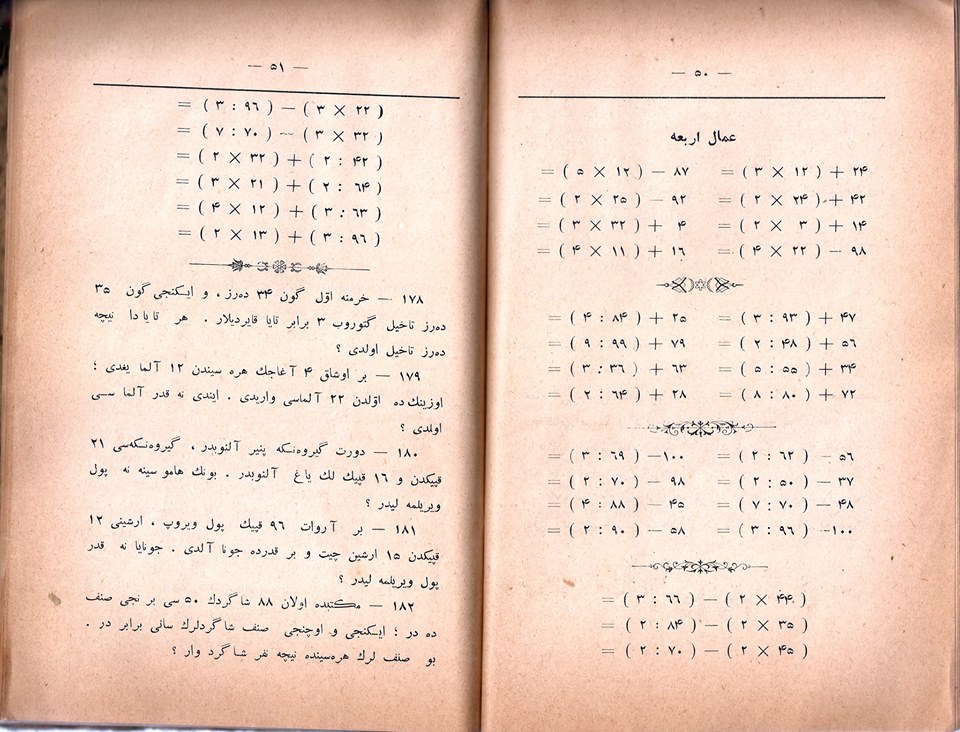 — ۵۰ —
عمال اربعه
۲۴ + ( ۱۲ × ۳ ) = ۸۷ — ( ۱۲ × ۵ ) =
۴۲ + ( ۲۴ × ۲ ) = ۹۲ — ( ۲۵ × ۲ ) =
۱۴ + ( ۳ × ۲ ) = ۴ + ( ۳۲ × ۳ ) =
۹۸ — ( ۲۲ × ۴ ) = ۱۶ + ( ۱۱ × ۴ ) =
۴۷ + ( ۹۳ : ۳ ) = ۲۵ + ( ۸۴ : ۴ ) =
۵۶ + ( ۴۸ : ۲ ) = ۷۹ + ( ۹۹ : ۹ ) =
۳۴ + ( ۵۵ : ۵ ) = ۶۳ + ( ۳۶ : ۳ ) =
۷۲ + ( ۸۰ : ۸ ) = ۲۸ + ( ۶۴ : ۲ ) =
۵۶ — ( ۶۲ : ۲ ) = ۱۰۰— ( ۶۹ : ۳ ) =
۳۷ — ( ۵۰ : ۲ ) = ۹۸ — ( ۷۰ : ۲ ) =
۴۸ — ( ۷۰ : ۷ ) = ۴۵ — ( ۸۸ : ۴ ) =
۱۰۰— ( ۹۶ : ۳ ) = ۵۸ — ( ۹۰ : ۲ ) =
( ۴۴ × ۲ ) — ( ۶۶ : ۳ ) =
( ۳۵ × ۲ ) — ( ۸۴ : ۲ ) =
( ۴۵ × ۲ ) — ( ۷۰ : ۲ ) =
— ۵۱ —
( ۲۲ × ۳ ) — ( ۹۶ : ۳ ) =
( ۳۲ × ۳ ) — ( ۷۰ : ۷ ) =
( ۴۲ : ۲ ) + ( ۳۲ × ۲ ) =
( ۶۴ : ۲ ) + ( ۲۱ × ۳ ) =
( ۶۳ : ۳ ) + ( ۱۲ × ۴ ) =
( ۹۶ : ۳ ) + ( ۱۳ × ۲ ) =
۱۷۸ — خرمنه اوّل گون ۳۴ ده‌رز ، و ایکنجی گون ۳۵
ده‌رز تاخیل گتوروب ۳ برابر تایا قایردیلار . هر تایا دا نیچه
ده‌رز تاخیل اولدی ؟
۱۷۹ — بر اوشاق ۴ آغاجك هره سیندن ۱۲ آلما یغدی ؛
اوزینك ده اوّلدن ۲۲ آلماسی واریدی . ایندی نه قدر آلما سی
اولدی ؟
۱۸۰ — دورت گیروه‌نکه پنیر آلنوبدر ، گیروه‌نکه‌سی ۲۱
قپیکدن و ۱۶ قپیك لك یاغ آلنوبدر . بونك هامو سینه نه پول
ویریلمه لیدر ؟
۱۸۱ — بر آروات ۹۶ قپیك پول ویروپ . ارشینی ۱۲
قپیکدن ۱۵ ارشین چیت و بر قدرده جونا آلدی . جونایا نه قدر
پول ویریلمه لیدر ؟
۱۸۲ — مکتبده اولان ۸۸ شاگردك ۵۰ سی بر نجی صنف
ده در ؛ ایکنجی و اوچنجی صنف شاگردلرك سانی برابر در .
بو صنف لرك هره‌سینده نیچه نفر شاگرد وار ؟